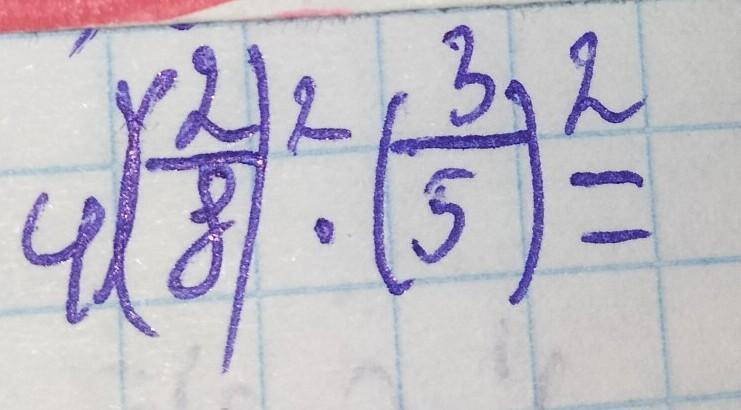 4(2/8)² · (3/5)² =